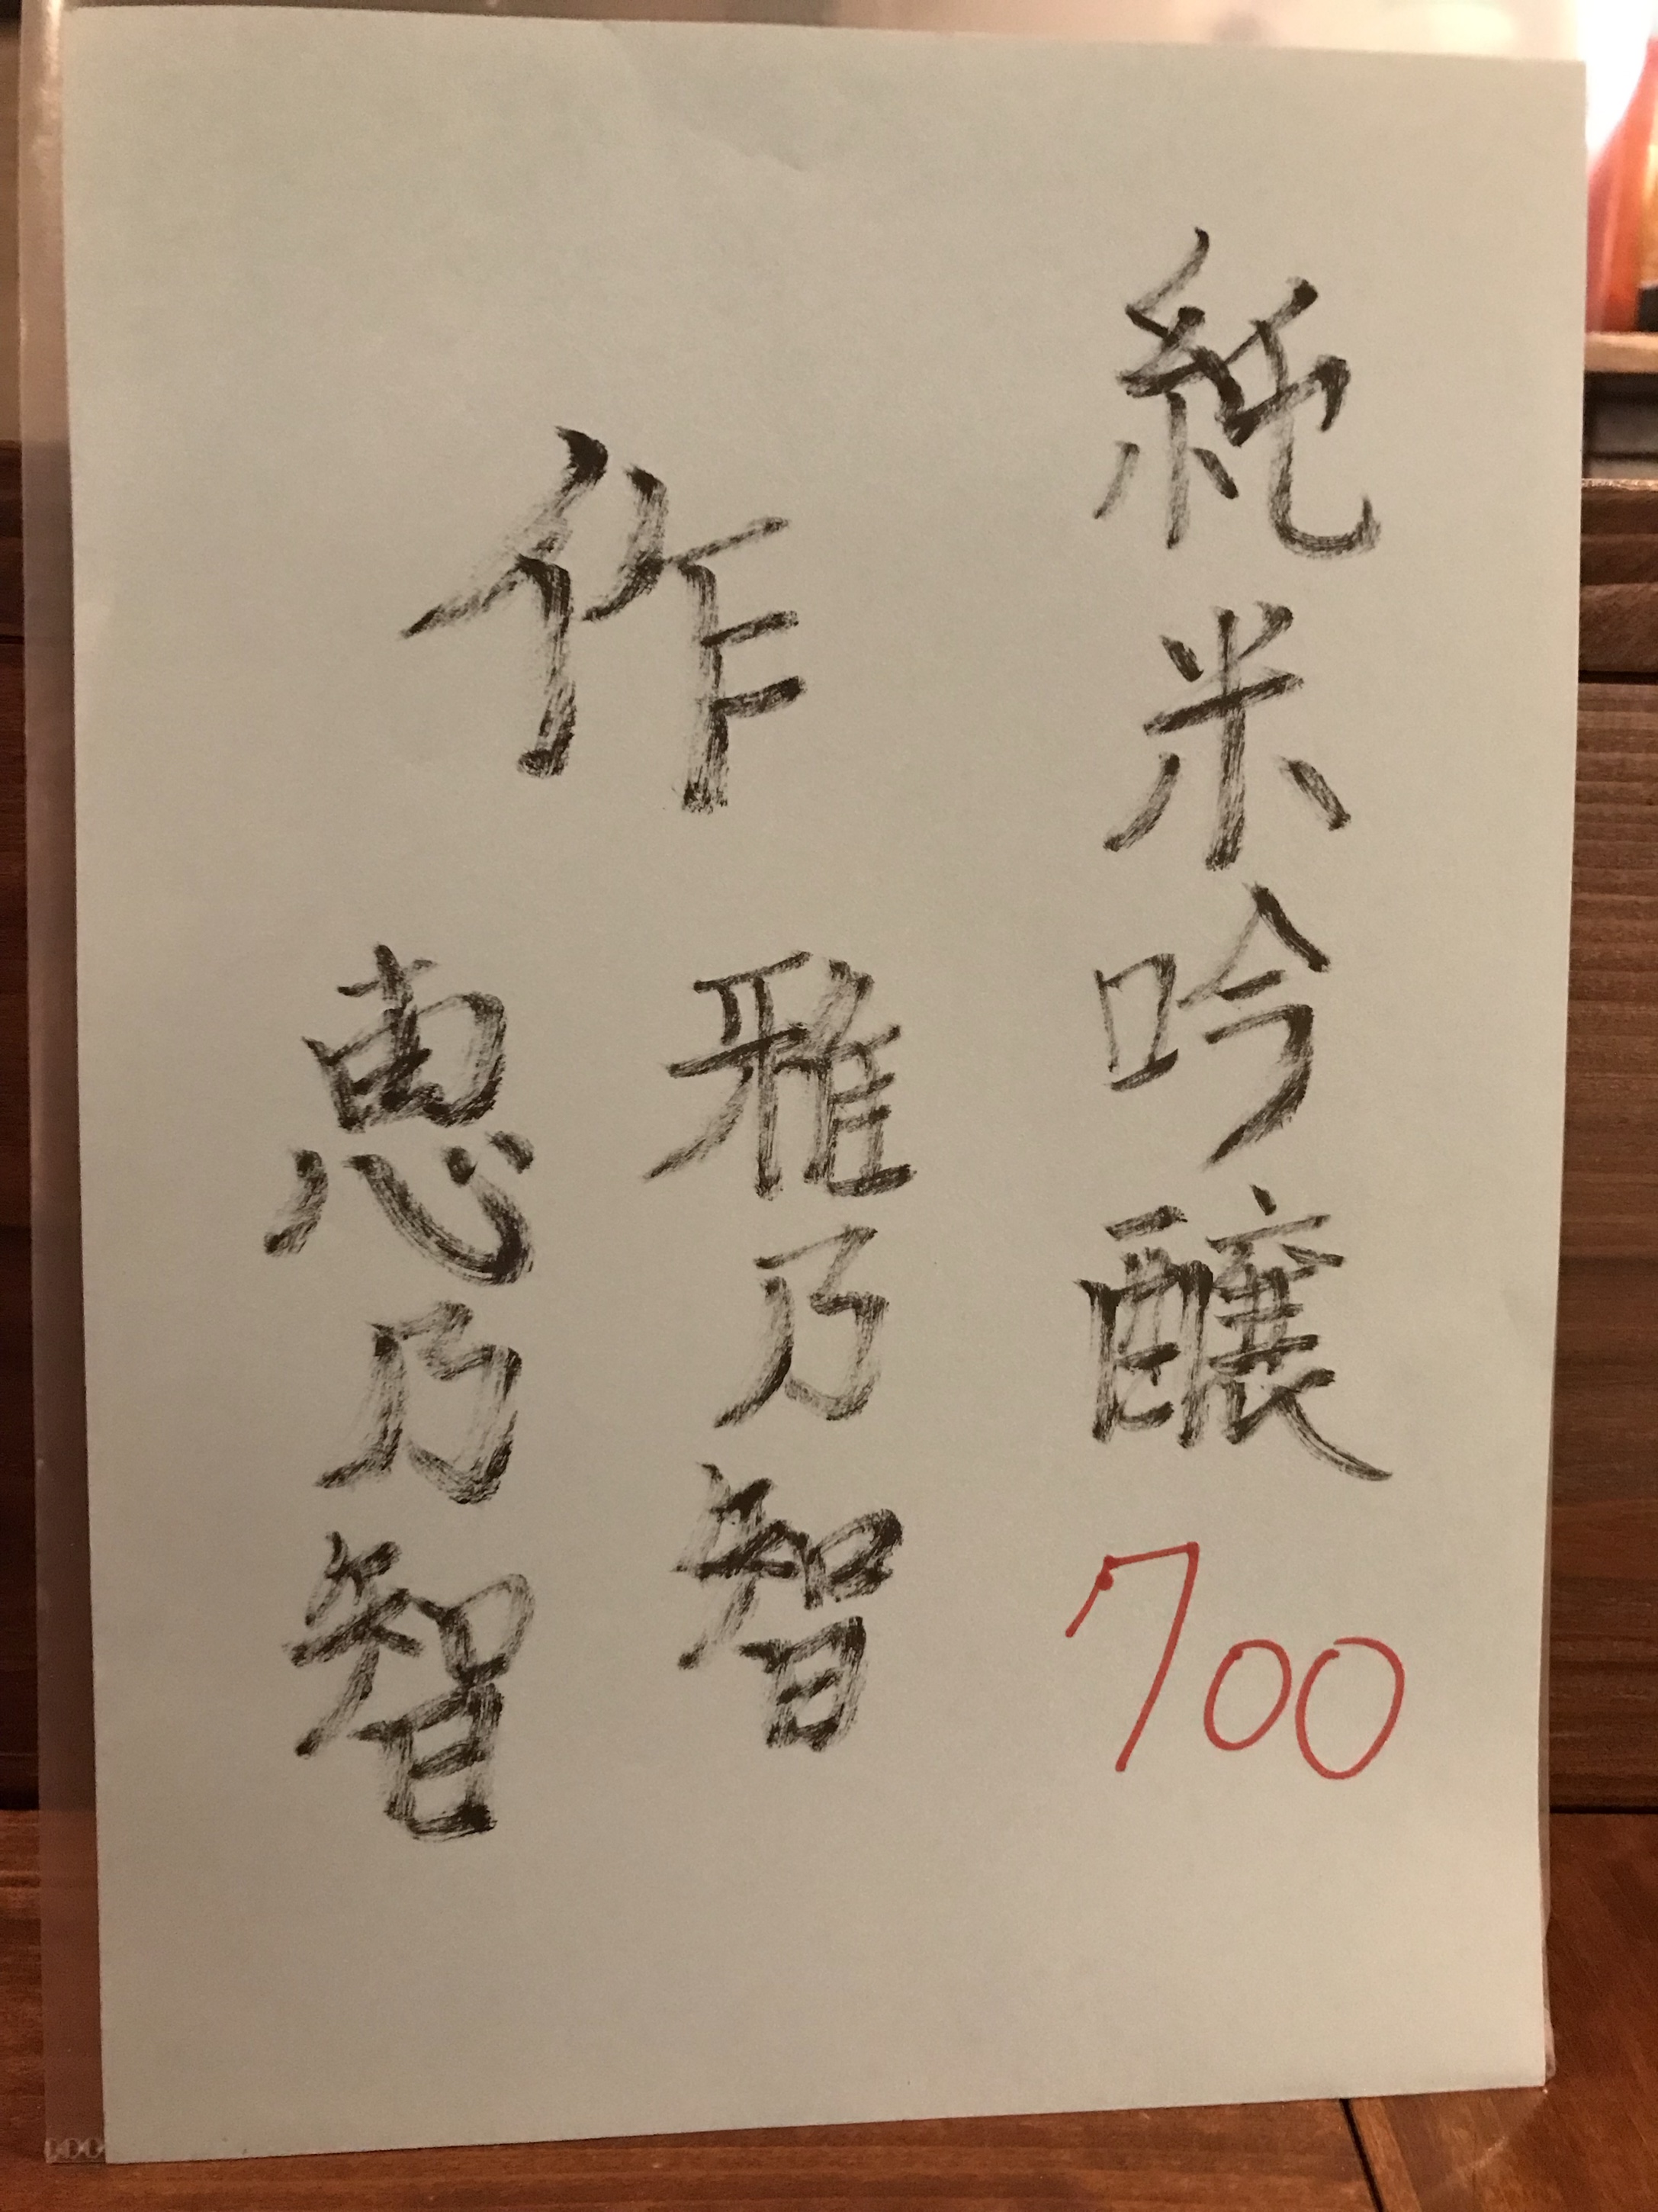 純米吟醸 700
作
雅乃智
恵乃智